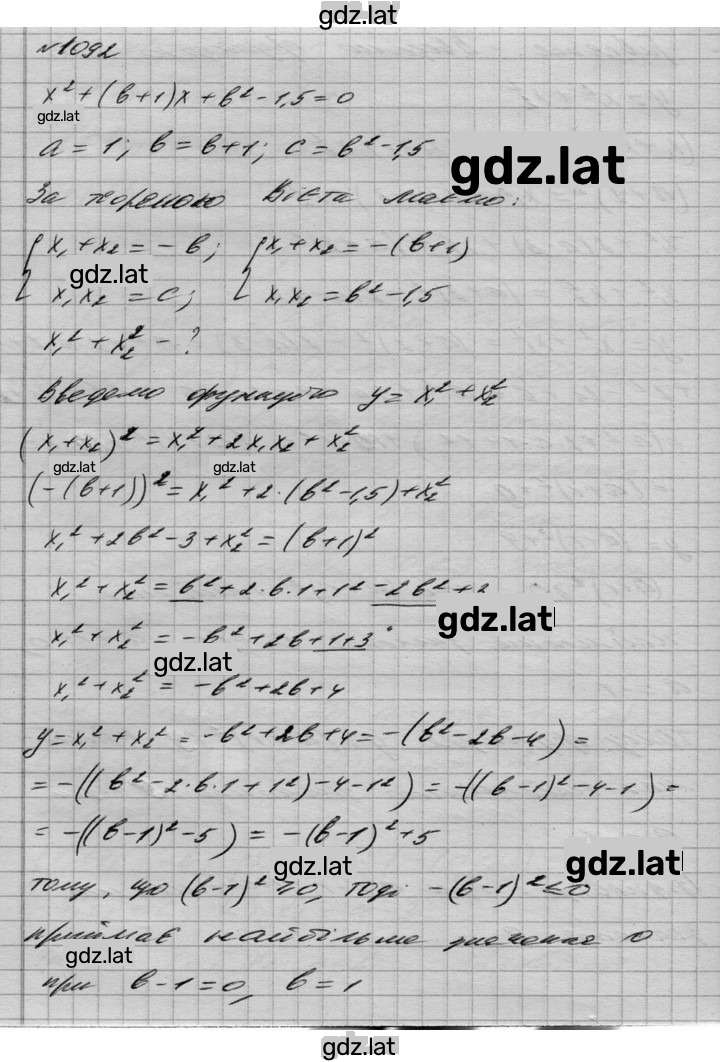 gdz.lat
№1092
x² + (в+1)x + в² - 1,5 = 0
gdz.lat
a = 1; в = в+1; c = в² - 1,5
gdz.lat
За теремою Вієта маємо:
{ x₁ + x₂ = - в; { x₁ + x₂ = -(в+1)
gdz.lat
x₁x₂ = c; x₁x₂ = в² - 1,5
x₁² + x₂² - ?
Введемо функцію y = x₁² + x₂²
(x₁ + x₂)² = x₁² + 2x₁x₂ + x₂²
gdz.lat gdz.lat
(-(в+1))² = x₁² + 2·(в² - 1,5) + x₂²
x₁² + 2в² - 3 + x₂² = (в+1)²
x₁² + x₂² = в² + 2·в·1 + 1² - 2в² + 3
gdz.lat
x₁² + x₂² = -в² + 2в + 1 + 3
gdz.lat
x₁² + x₂² = -в² + 2в + 4
y = x₁² + x₂² = -в² + 2в + 4 = -(в² - 2в - 4) =
= -((в² - 2·в·1 + 1²) - 4 - 1²) = -((в-1)² - 4 - 1) =
= -((в-1)² - 5) = -(в-1)² + 5
gdz.lat gdz.lat
тому, що (в-1)² ≥ 0, тоді -(в-1)² ≤ 0
приймає найбільше значення 0
gdz.lat
при в - 1 = 0, в = 1
gdz.lat